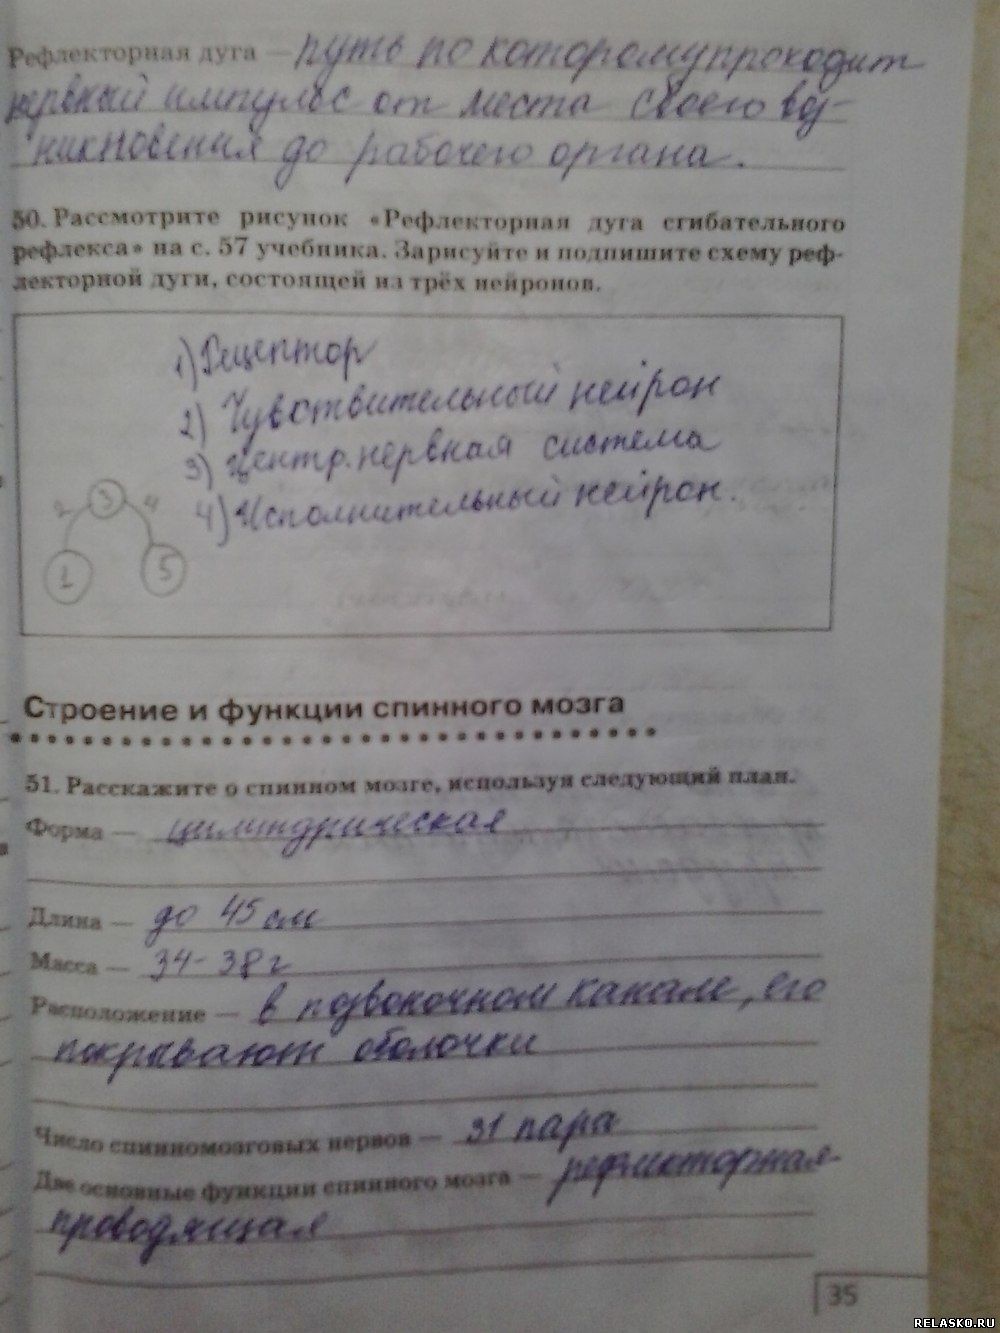 Рефлекторная дуга — путь по которому проходит
нервный импульс от места своего воз-
никновения до рабочего органа.
50. Рассмотрите рисунок «Рефлекторная дуга сгибательного
рефлекса» на с. 57 учебника. Зарисуйте и подпишите схему реф-
лекторной дуги, состоящей из трёх нейронов.
1) Рецептор
2) Чувствительный нейрон
3) Центр. нервная система
4) Исполнительный нейрон.
2 3 4
1 5
Строение и функции спинного мозга
51. Расскажите о спинном мозге, используя следующий план.
Форма — цилиндрическая
Длина — до 45 см
Масса — 34-38 г
Расположение — в позвоночном канале, его
покрывают оболочки
Число спинномозговых нервов — 31 пара
Две основные функции спинного мозга — рефлекторная
проводящая
35
RELASKO.RU